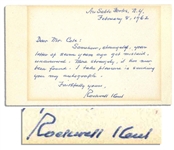 Au Sable Forks, N.Y.
February 8, 1962
Dear Mr. Cole:
Somehow, strangely, your
letter of seven years ago got mislaid,
unanswered. Now strangely, it has now
been found. I take pleasure in sending
you my autograph.
Faithfully yours,
Rockwell Kent
Rockwell Kent